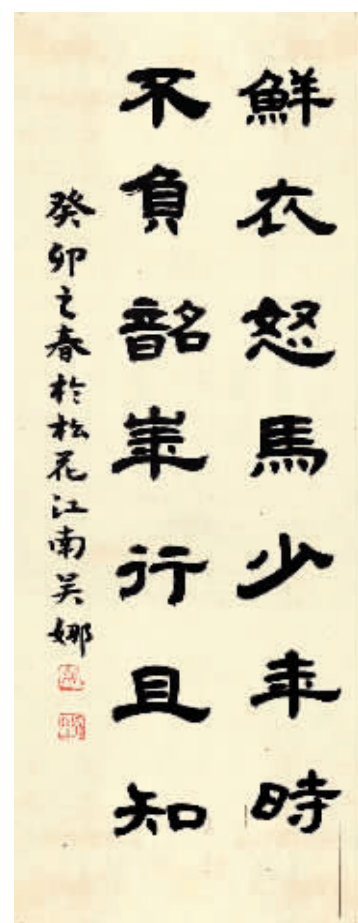 鮮衣怒馬少年時
不負韶華行且知
癸卯之春於松花江南吴娜